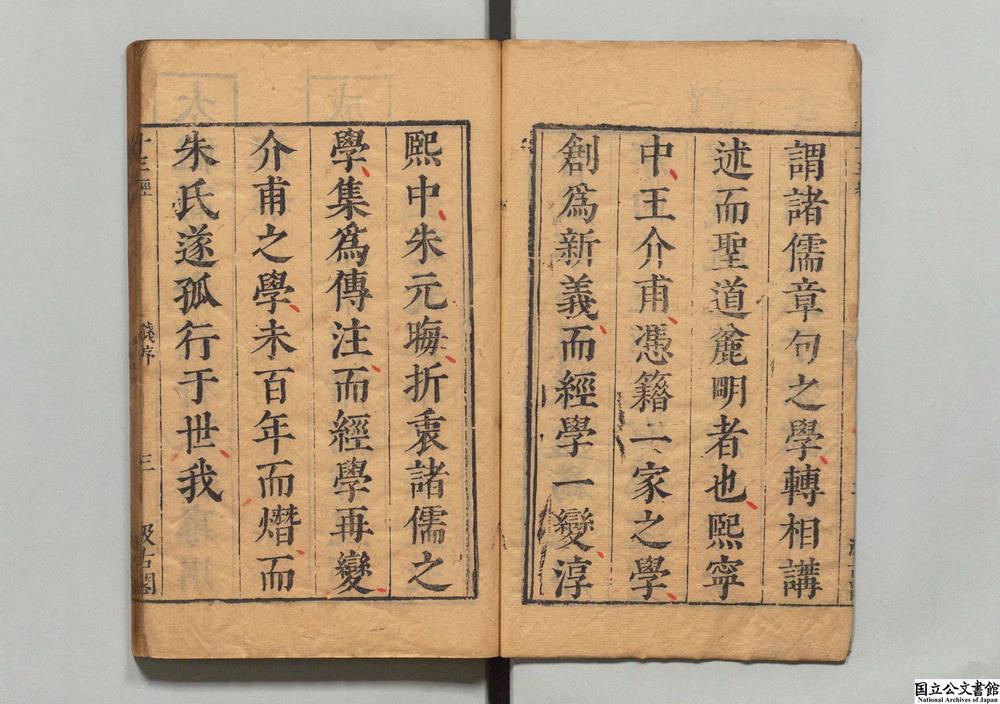 謂諸儒章句之學轉相講
述而聖道麄明者也熙寧
中王介甫憑籍二家之學
創爲新義而經學一變淳
熙中朱元晦折衷諸儒之
學集爲傳注而經學再變
介甫之學未百年而熸而
朱氏遂孤行于世我
十三經
錢序
三
汲古閣
国立公文書館
National Archives of Japan